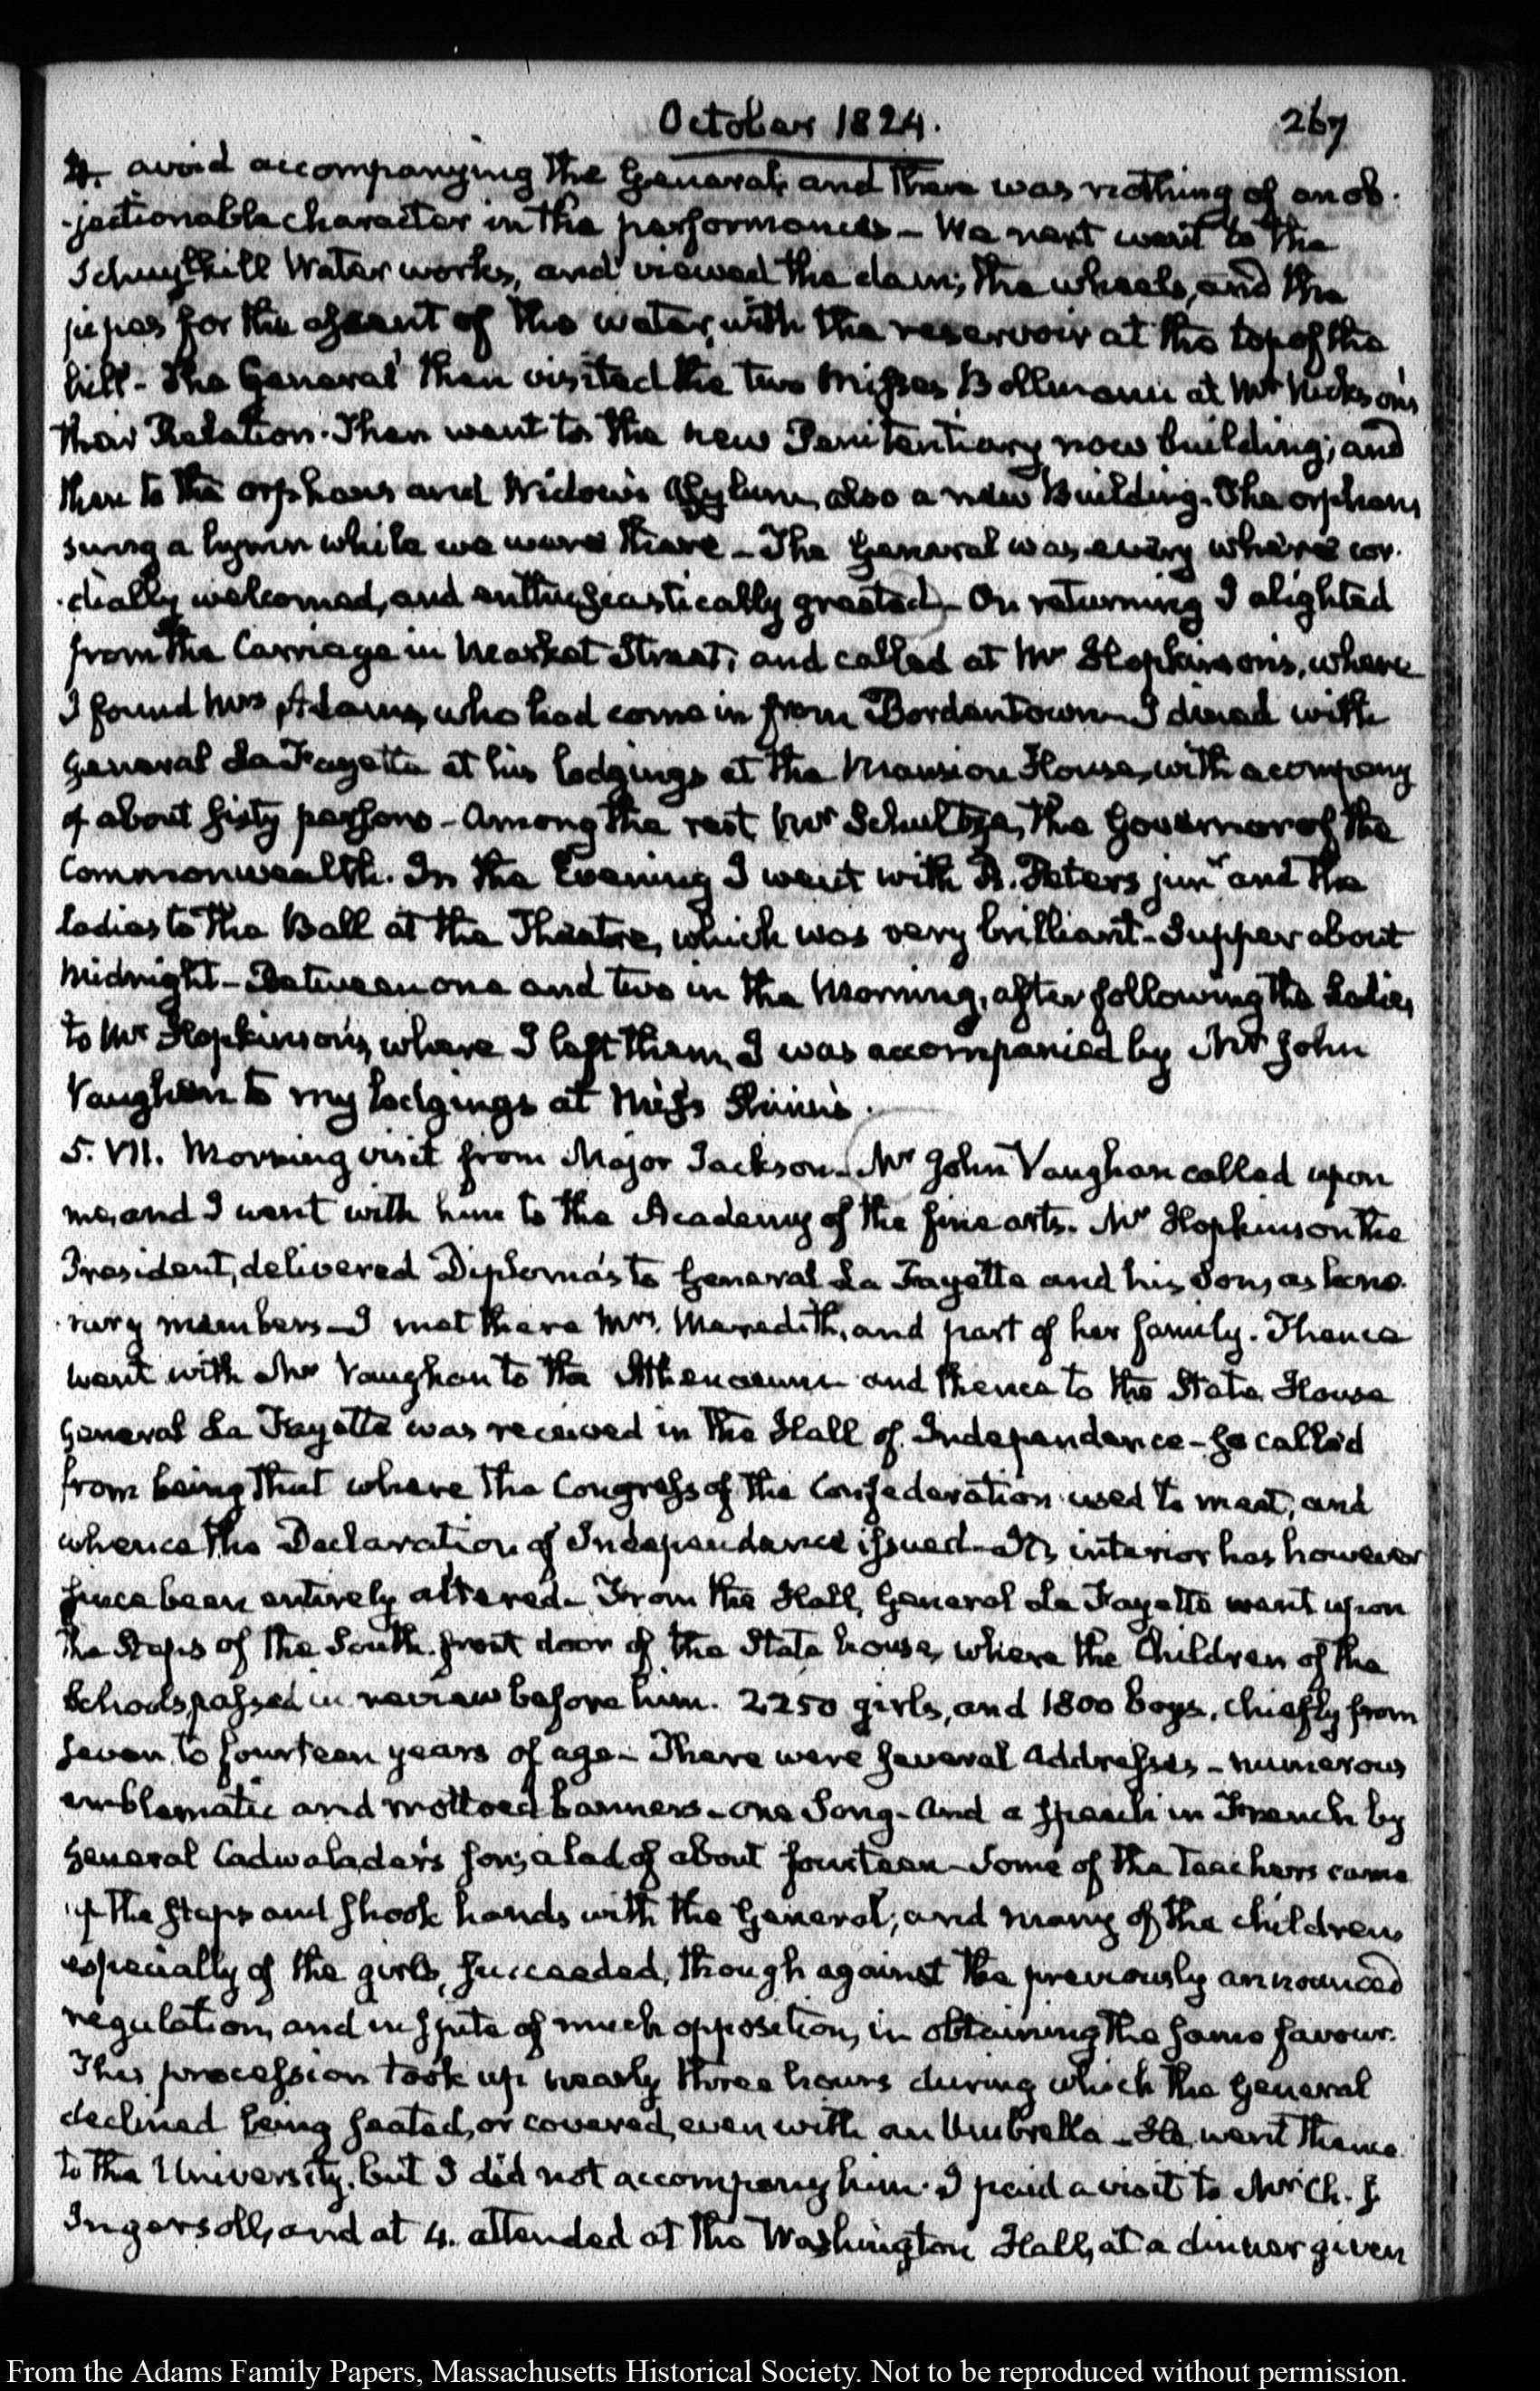 October 1824.
267
4. avoid accompanying the General, and there was nothing of an ob-
-jectionable character in the performances — We next went to the
Schuylkill Water works, and viewed the dam; the wheels, and the
pipes for the ascent of the water, with the reservoir at the top of the
hill — The General then visited the two Misses Bollmann at Mr Nickson's
their Relation. Then went to the new Penitentiary now building; and
then to the orphans and Widow's Asylum, also a new Building. The orphans
sung a hymn while we were there — The General was every where cor-
-dially welcomed, and enthusiastically greeted — On returning I alighted
from the Carriage in Market Street, and called at Mr Hopkinson's, where
I found Mrs Adams, who had come in from Bordentown — I dined with
General La Fayette at his lodgings at the Mansion House, with a company
of about sixty persons — Among the rest Mr Schultze, the Governor of the
Commonwealth. In the Evening I went with R. Peters junr and the
ladies to the Ball at the Theatre, which was very brilliant — Supper about
Midnight — Between one and two in the Morning, after following the Ladies
to Mr Hopkinson's, where I left them, I was accompanied by Mr John
Vaughan to my lodgings at Miss
5. VII. Morning visit from Major Jackson — Mr John Vaughan called upon
me, and I went with him to the Academy of the fine arts. Mr Hopkinson the
President, delivered Diploma's to General La Fayette and his Son, as hono-
-rary members — I met there Mrs. Meredith, and part of her family. Thence
went with Mr Vaughan to the Athenaeum and thence to the State House
General La Fayette was received in the Hall of Independence — so called
from being that where the Congress of the Confederation used to meet, and
whence the Declaration of Independence issued — Its interior has however
since been entirely altered. From the Hall, General La Fayette went upon
the Steps of the South front door of the State house, where the Children of the
Schools passed in review before him. 2250 girls, and 1800 boys, chiefly from
seven to fourteen years of age — There were several addresses — numerous
emblematic and mottoed banners — one Song — and a speech in French by
General Cadwalader's son, a lad of about fourteen — Some of the teachers came
up the steps and shook hands with the General; and many of the children
especially of the girls, succeeded, though against the previously announced
regulation, and in spite of much opposition, in obtaining the same favour.
This procession took up nearly three hours during which the General
declined being seated, or covered, even with an Umbrella — He went thence
to the University, but I did not accompany him. I paid a visit to Mr Ch. J.
Ingersoll, and at 4. attended at the Washington Hall, at a dinner given
From the Adams Family Papers, Massachusetts Historical Society. Not to be reproduced without permission.